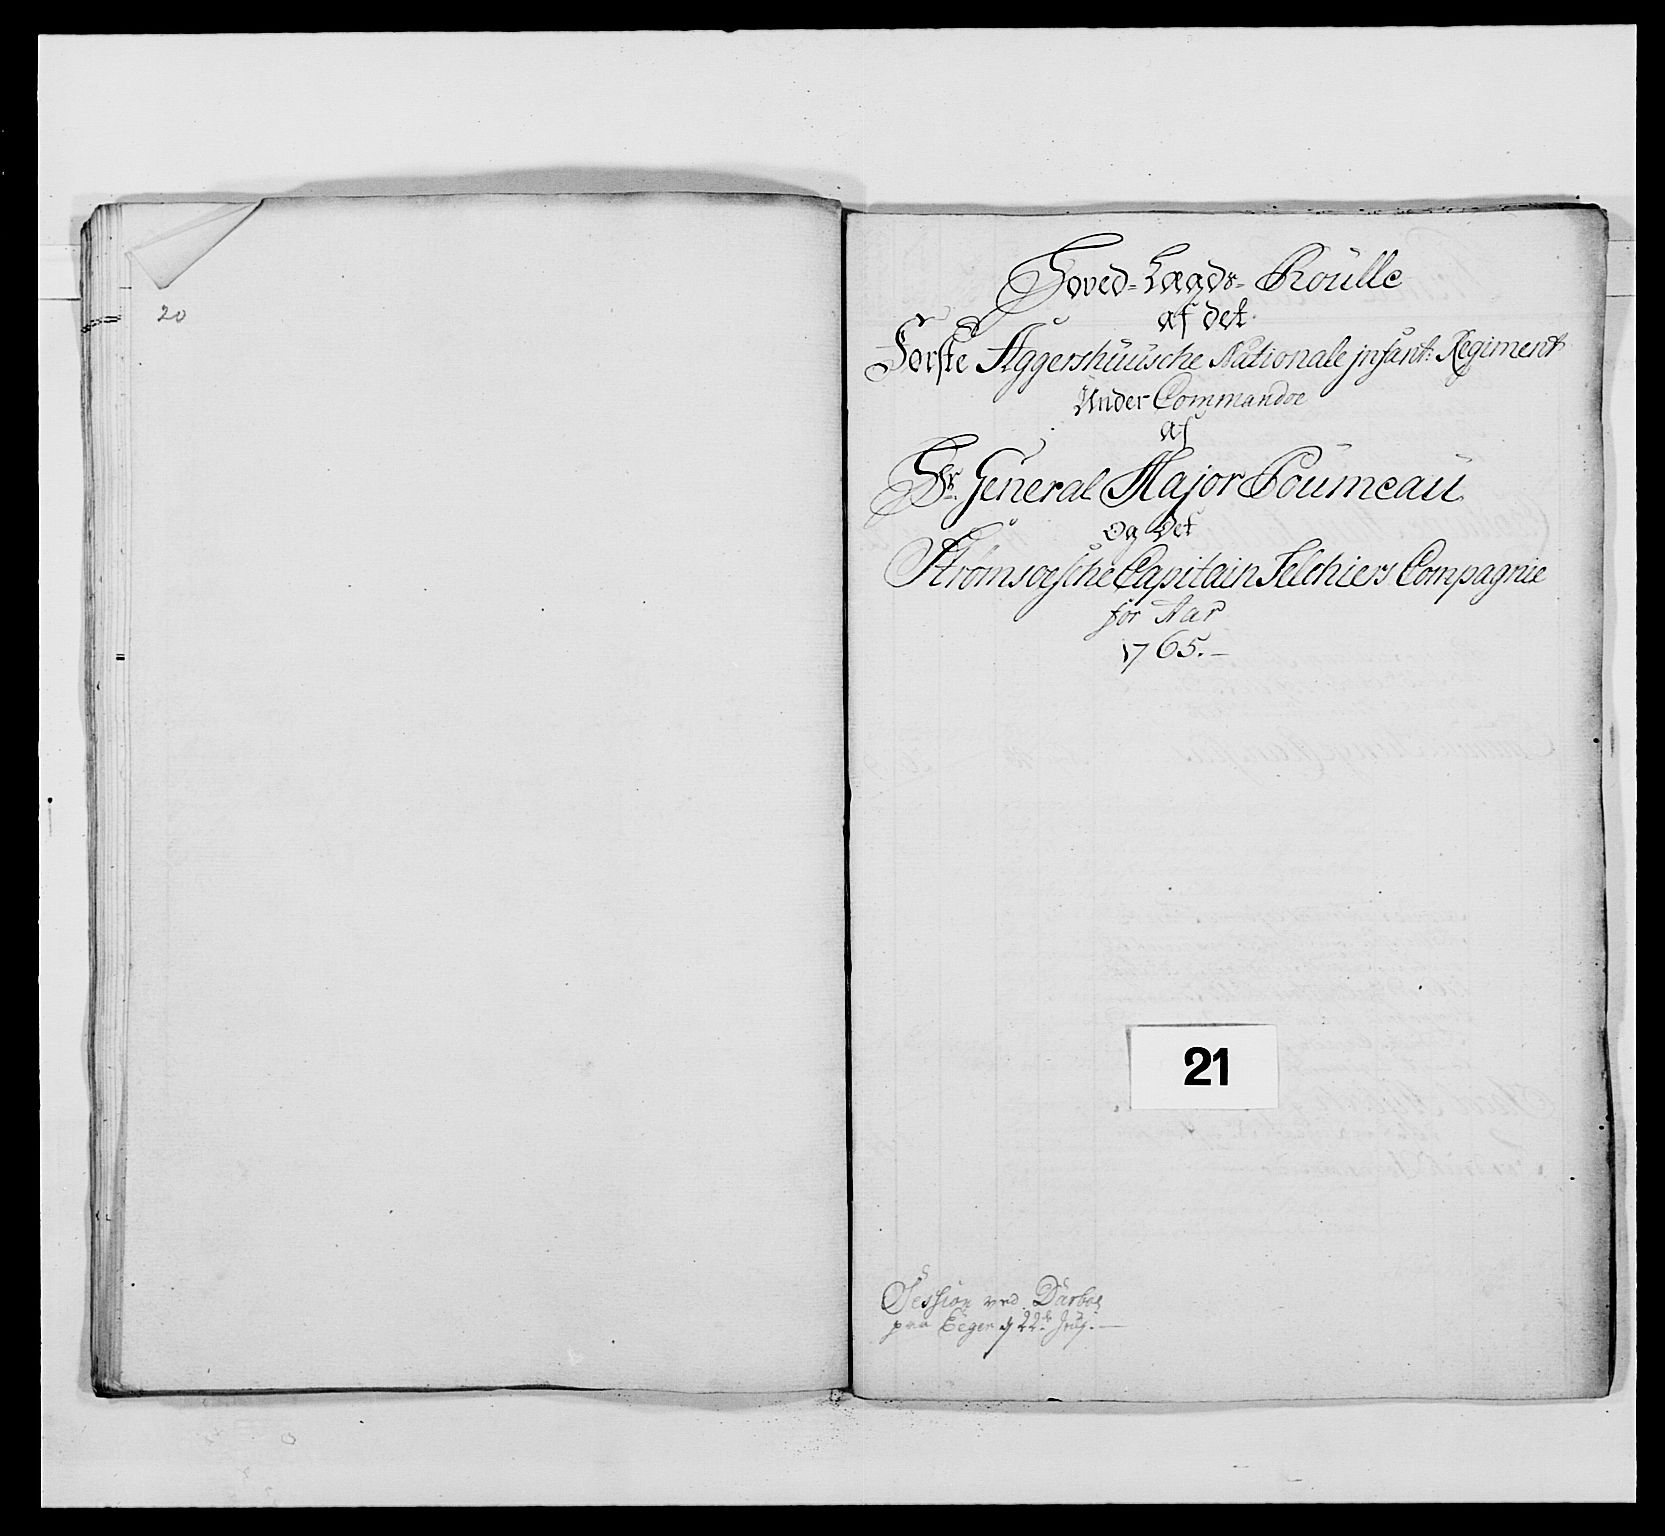 20
Hoved-Lægds-Roulle
af det
Første Aggershuusche Nationale jnfant: Regiment
Under Commandoe
af
Hr. General Major Poumeau
Og Det
Strømsoesche Capitain Felchiers Compagnie
for Aar
1765.
21
Session ved Darboe
paa Eeger d 22de July.